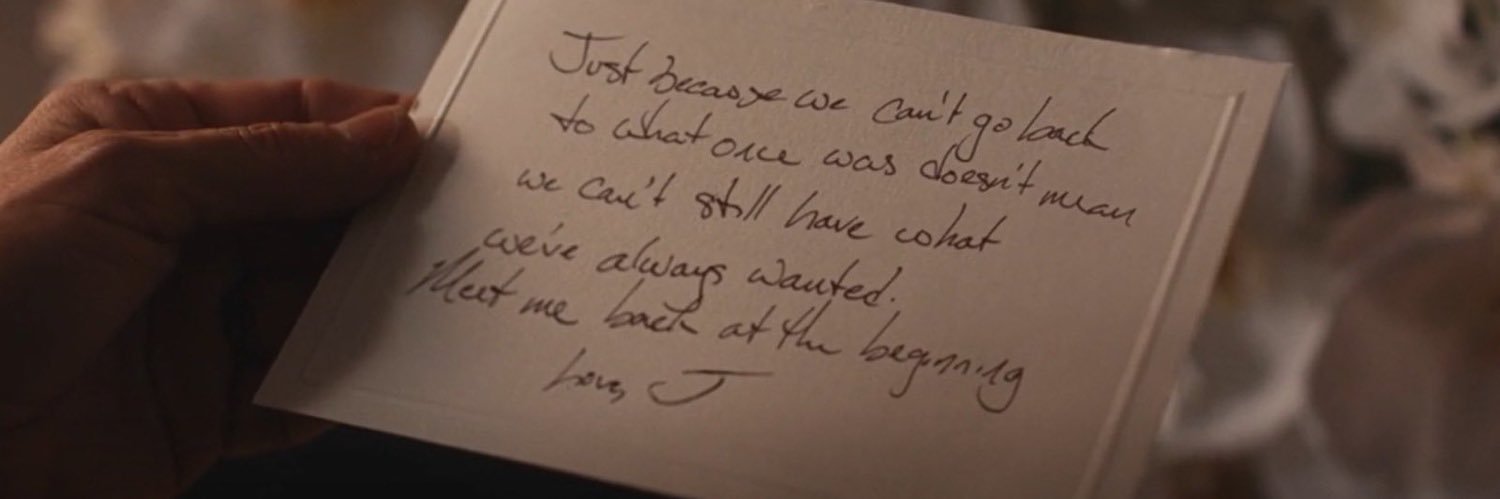 Just because we can't go back
to what once was doesn't mean
we can't still have what
we've always wanted.
Meet me back at the beginning
Love, J